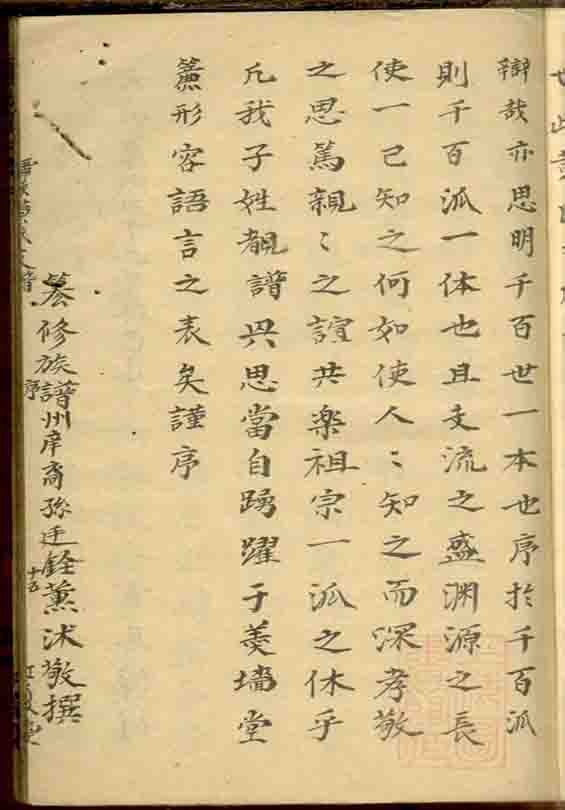 辯哉亦思明千百世一本也序於千百派
則千百派一体也且支流之盛渊源之長
使一己知之何如使人〻知之而深孝敬
之思篤親〻之誼共楽祖宗一派之休乎
凢我子姓覩譜興思當自踴躍于羮墻堂
簾形容語言之表矣謹序
修族譜州庠裔孫 銓薫沐敬撰
序
十五